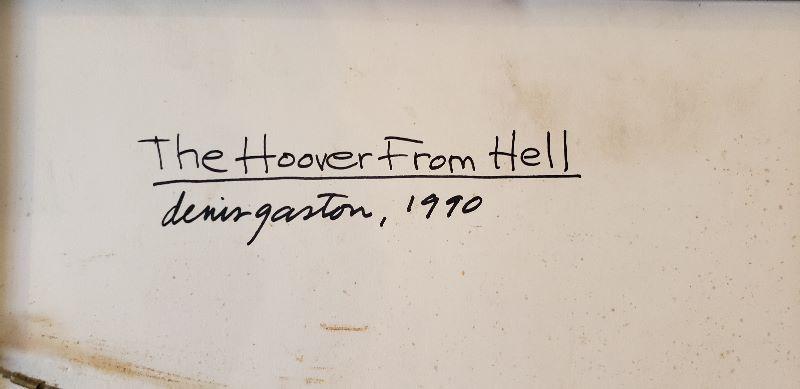 The Hoover From Hell
denis gaston, 1990